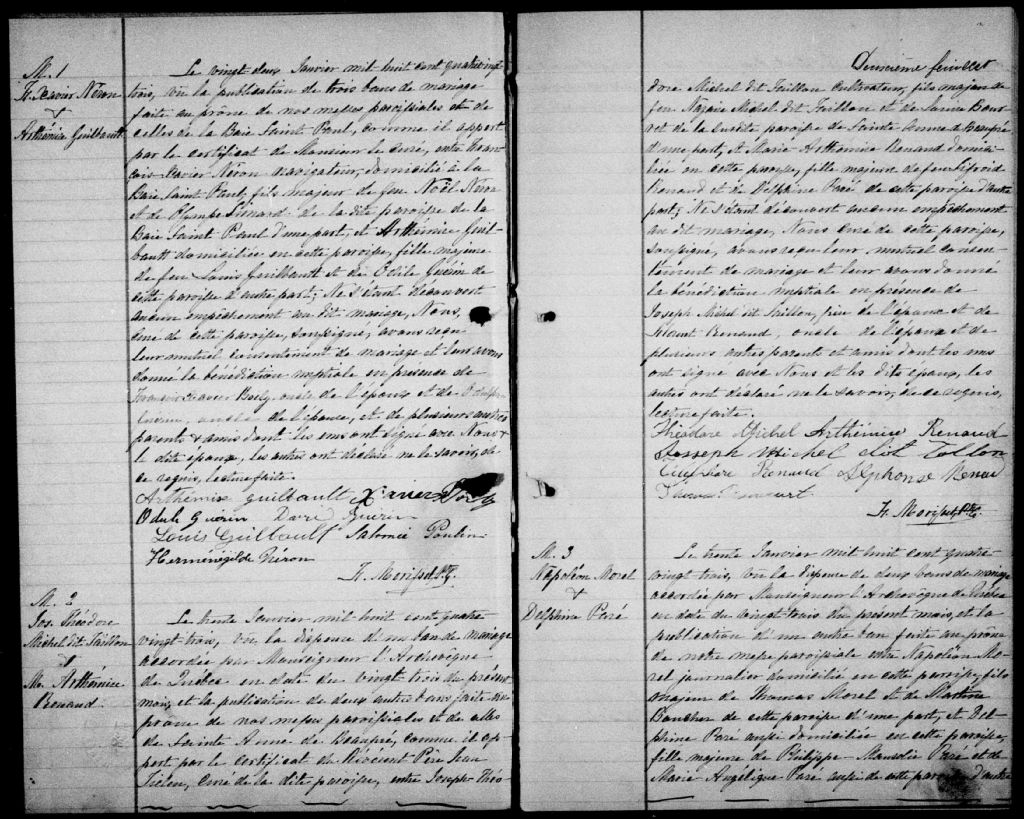 M. 1
F. Xavier Néron
&
Arthémise Guilbault
Le vingt deux Janvier mil huit cent quatre vingt
trois, vu la publication de trois bans de mariage
faite au prône de nos messes paroissiales et de
celles de la Baie Saint Paul, comme il appert
par le certificat de Monsieur le Curé, entre Fran-
çois Xavier Néron navigateur, domicilié à la
Baie Saint Paul, fils majeur de feu Noël Néron
et de Olympe Simard de la dite paroisse de la
Baie Saint Paul d'une part, et Arthémise Guil-
bault domiciliée en cette paroisse, fille majeure
de feu Louis Guilbault et de Odile Guérin de
cette paroisse d'autre part; Ne s'étant découvert
aucun empêchement au dit mariage, Nous,
Curé de cette paroisse, soussigné, avons reçu
leur mutuel consentement de mariage et leur avons
donné la bénédiction nuptiale en présence de
François Xavier oncle de l'époux et de
oncle de l'épouse, et de plusieurs autres
parents & amis dont les uns ont signé avec Nous &
le dits epoux, les autres ont déclaré ne le savoir, de
ce requis, lecture faite.
Arthémise Guilbault Xavier
Odule Guérin Guérin
Louis Guilbault Salomée Poulin
Herménégilde Néron
F. Morisset Ptre
M. 2
Jos. Théodore
Michel dit Taillon
&
M. Arthémise
Renaud.
Le trente Janvier mil huit cent quatre
vingt trois, vu la dispense d'un ban de mariage
accordée par Monseigneur l'Archevêque
de Québec en date du vingt trois du présent
mois, et la publication de deux autres bans faite au
prône de nos messes paroissiales et de celles
de Sainte Anne de Beaupré, comme il ap-
pert par le certificat du Révérend Père Jean
Tielen, Curé de la dite paroisse, entre Joseph Théo-
Deuxième feuillet
dore Michel dit Taillon cultivateur, fils majeur de
feu Nazaire Michel dit Taillon et de
de la susdite paroisse de Sainte Anne de Beaupré,
d'une part, et Marie Arthémise Renaud domici-
liée en cette paroisse, fille majeure de feu
Renaud et de Delphine Paré de cette paroisse d'autre
part; Ne s'étant découvert aucun empêchement
au dit mariage, Nous Curé de cette paroisse,
soussigné, avons reçu leur mutuel consen-
tement de mariage et leur avons donné
la bénédiction nuptiale en présence de
Joseph Michel dit Taillon, de l'époux et de
Renaud, oncle de l'épouse et de
plusieurs autres parents et amis dont les uns
ont signé avec Nous et les dits epoux, les
autres ont déclaré ne le savoir, de ce requis,
lecture faite.
Théodore Michel Arthémise Renaud
Joseph Michel dit Tollon
Renaud Alphonse Renaud
F. Morisset Ptre
M. 3
Napoléon Morel
&
Delphine Paré
Le trente Janvier mil huit cent quatre-
vingt trois, vu la dispense de deux bans de mariage
accordée par Monseigneur l'Archevêque de Québec
en date du vingt trois du présent mois, et la
publication d'un autre ban faite au prône
de notre messe paroissiale entre Napoléon Mo-
rel journalier domicilié en cette paroisse, fils
majeur de Thomas Morel et de Martine
Boucher de cette paroisse d'une part, et Del-
phine Paré aussi domiciliée en cette paroisse,
fille majeure de Philippe Paré et de
Marie Angélique Paré aussi de cette paroisse d'autre